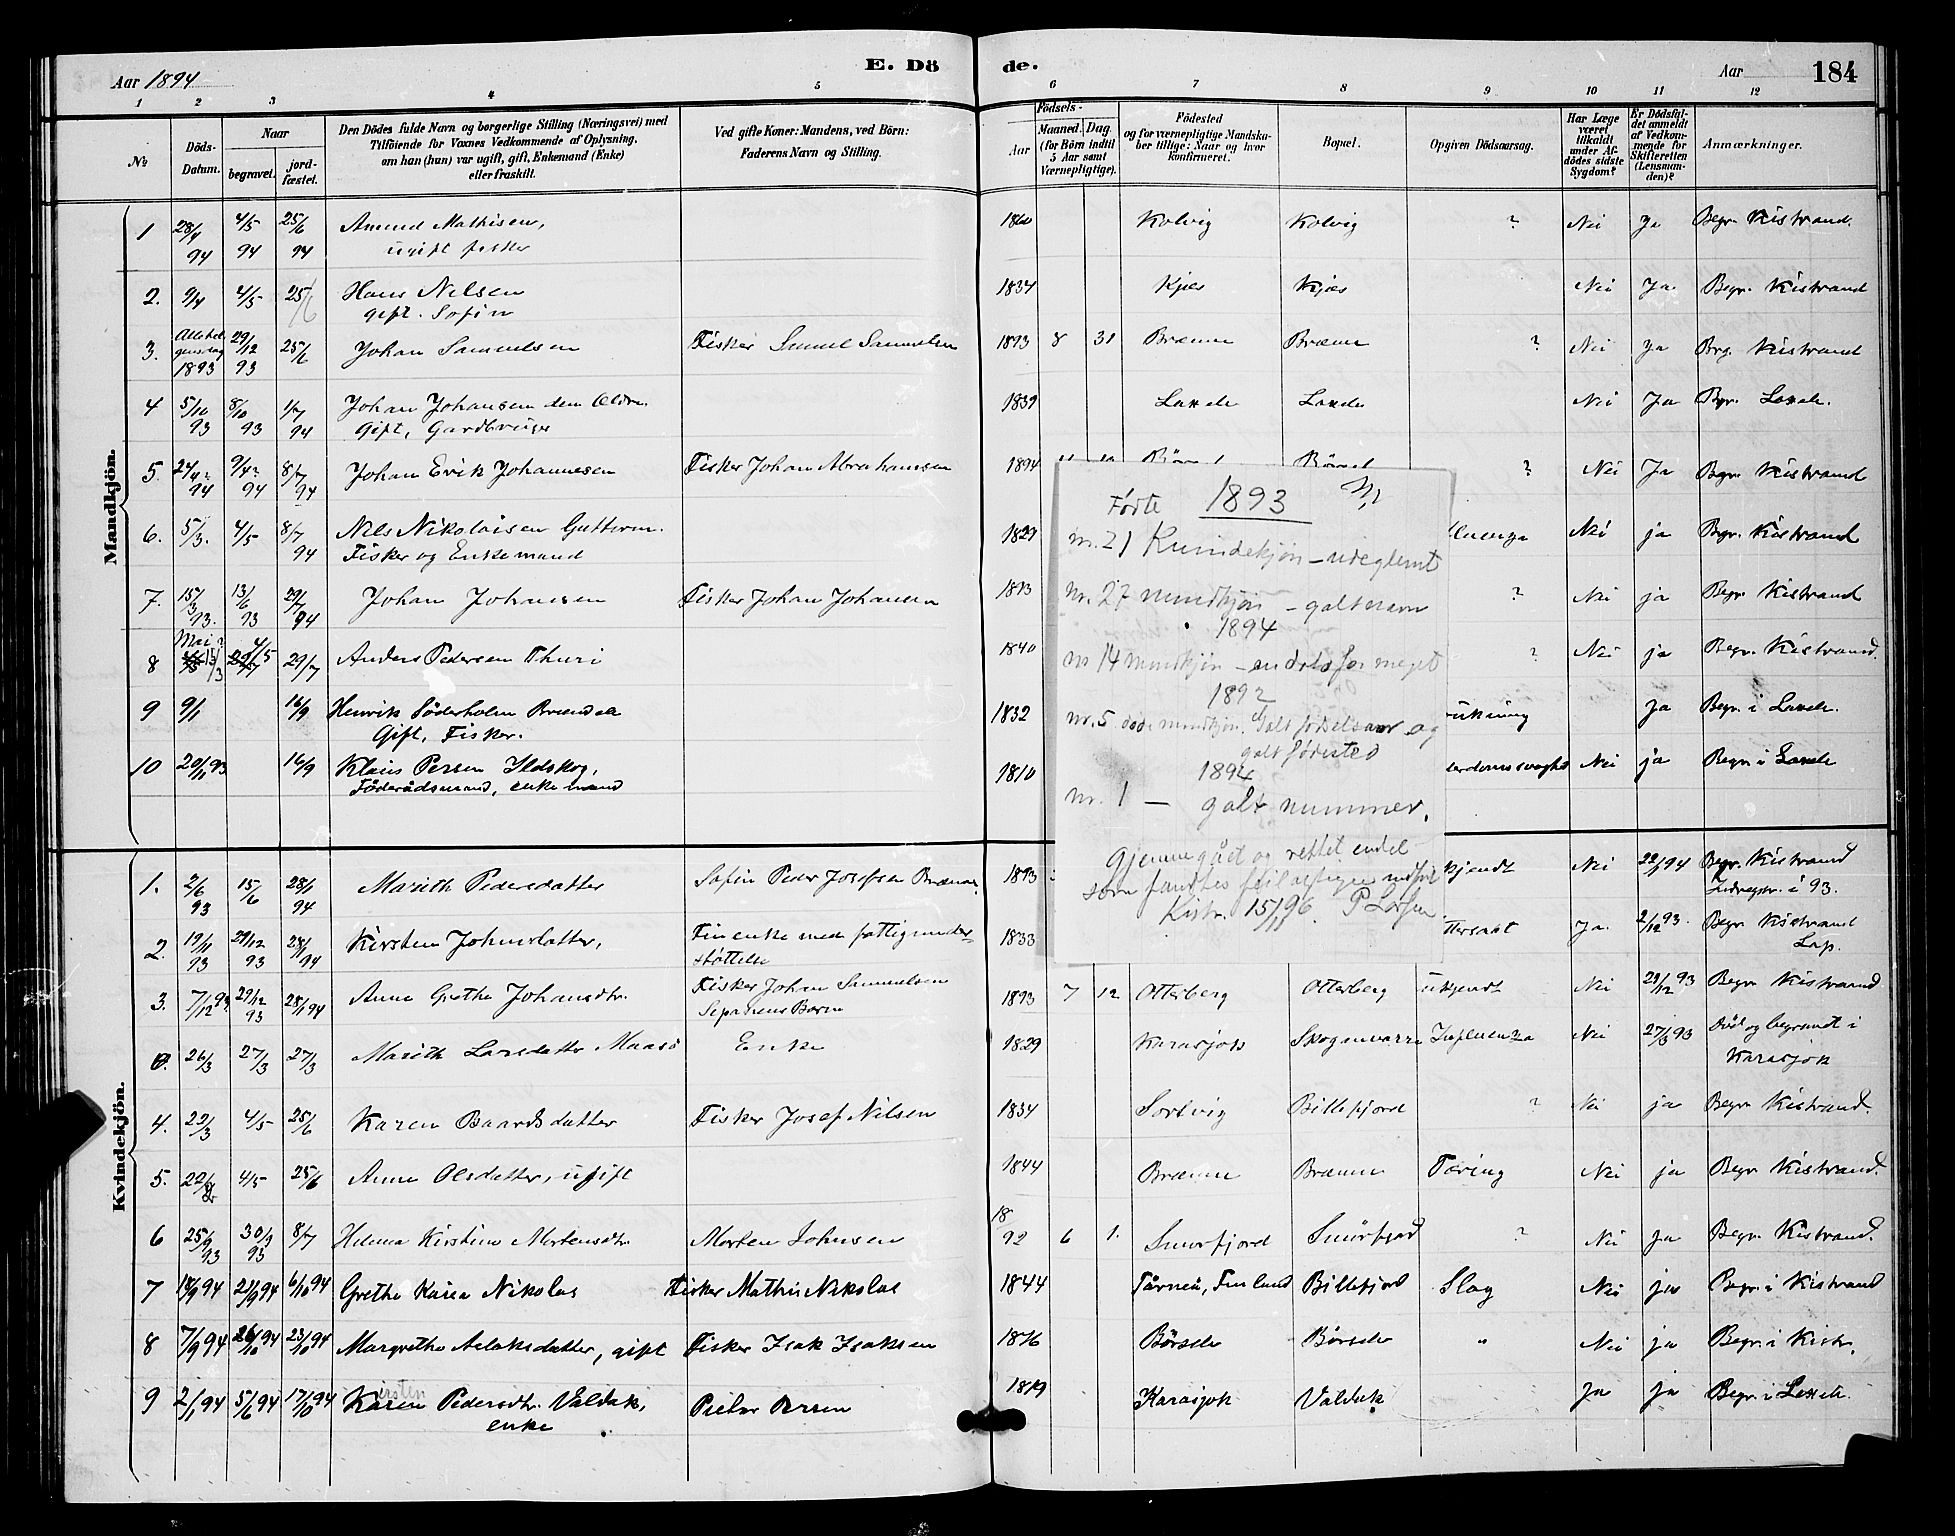 Aar 1894
E. Dö
de.
Aar
184
1 2 3 4 5 6 7 8 9 10 11 12
No
Döds-Datum.
Naar
begravet.
jordfæstet.
Den Dödes fulde Navn og borgerlige Stilling (Næringsvei) med
Tilföiende for Voxnes Vedkommende af Oplysning,
om han (hun) var ugift, gift, Enkemand (Enke)
eller fraskilt.
Ved gifte Koner: Mandens, ved Börn:
Faderens Navn og Stilling.
Födsels-
Aar
Maaned. Dag
(for Börn indtil
5 Aar samt
Værnepligtige).
Födested
og for værnepligtige Mandskaber tillige: Naar og hvor
konfirmeret.
Bopæl.
Opgiven Dödsaarsag.
Har Læge
været
tilkaldt
under Afdödes sidste
Sygdom?
Er Dödsfaldet anmeldt
af Vedkommende for
Skifteretten
(Lensmanden)?
Anmærkninger.
Mandkjön.
1 28/4 94 4/5 94 25/6 94 Amund Mathisen, ugift fisker 1860 Kolvig Kolvig ? Nei Ja Begr. Kistrand.
2. 9/4 4/5 25/6 Hans Nilsen gift. Sofin 1834 Kjæs Kjæs Nei Ja. Begr. Kistrand
3. Allehelgensdag 1893 29/12 93 25/6 Johan Samuelsen Fisker Samuel Samuelsen 1893 8 31 Brænne Brænne ? Nei Ja Brg. Kistrand
4 5/10 93 8/10 93 1/7 94 Johan Johansen den Ældre. Gift, Gardbruger 1839 Laxelv Laxelv Nei Ja Begr. Laxelv.
5. 24/4? 94 9/4? 94 8/7 94 Johan Erik Johannesen Fisker Johan Abrahamsen 1894 ? Nei Ja Begr. Kistrand
6. 5/3. 4/5 8/7 94 Nils Nikolaisen Guttorm. Fisker og Enkemand 1829 Nei ja Begr. Kistrand
7. 15/3 93. 13/6 93 29/7 94 Johan Johansen Fisker Johan Johansen 1893 ? Nei ja Begr. Kistrand
8 Mai? 29/7 Anders Pedersen Thuri 1840 ? Nei ja Begr. Kistrand.
9 9/1 16/9 Henrik Söderholm Brændelv Gift, Fisker. 1832 Ja Begr. i Laxelv.
10 20/11 93 16/9 Klaus Persen Ildskog, Föderådsmand, enkemand 1810 Nei ja Begr. i Laxelv
Førte 1893
nr. 21 Kvindekjøn – udeglemt
nr. 27 mandkjøn – galt navn
1894
nr 14 mandkjøn – en del for meget
1892
nr. 5 døde mandkjøn. Galt fødselsaar og
galt fødested
1894
nr. 1 — galt nummer.
Gjennegået og rettet endel
som fandtes
Kistr. 15/1 96.
Kvindekjön.
1. 2/6 93 15/6 28/1 94 Marith Pedersdatter Sofin Peder Josefsen Brænne 1893 kjendt Nei 22/1 94 Begr. Kistrand i 93.
2. 19/11 93 29/12 93 28/1 94 Kirsten Johnsdatter, Fin enke med fattigunderstöttelse 1833 Ja. 2/12 93. Begr. Kistrand Lap.
3. 7/12 93. 29/12 93 28/1 94 Anne Grethe Johansdtr. Fisker Johan Samuelsen 1893 7 12 Otterberg Otterberg ukjendt Nei 29/12 93 Begr. Kistrand
0. 26/3 27/3 27/3 Marith Larsdatter Maasö Enke 1829 Karasjok Skoganvarre Influenza Nei 27/3 93 Död og begravet i Karasjok
4. 23/3 4/5 25/6 Karen Baardsdatter Fisker Josef Nilsen 1834 Sortvig Billefjord ? Nei ja Begr. Kistrand.
5. 22/4 4/5 25/6 Anne Olsdatter, ugift 1844 Brænne Brænne Tæring Nei ja Begr. Kistrand.
6 25/9 93 30/9 93 8/7 Helena Kirstine Mortensdtr. Morten Johnsen 1892 6 1. Smörfjord Smörfjord ? Nei ja Begr. Kistrand.
7 18/9 94 23/9 94 6/10 94 Grethe Karen Nikolas Fisker Mathis Nikolas 1844 Tårneå, Finland Billefjord Slag Nei ja Begr. i Kistrand
8 7/9 94 26/10 94 23/10 94 Margrethe Aslaksdatter, gift Fisker Isak Isaksen 1876 Börselv Börselv " Nei ja Begr. i Kistr.
9 2/1 94 5/6 94 17/10 94 Karen Pedersdtr. Valdak, enke Peter Persen 1819 Karasjok Valdak Ja ja Begr. i Laxelv.